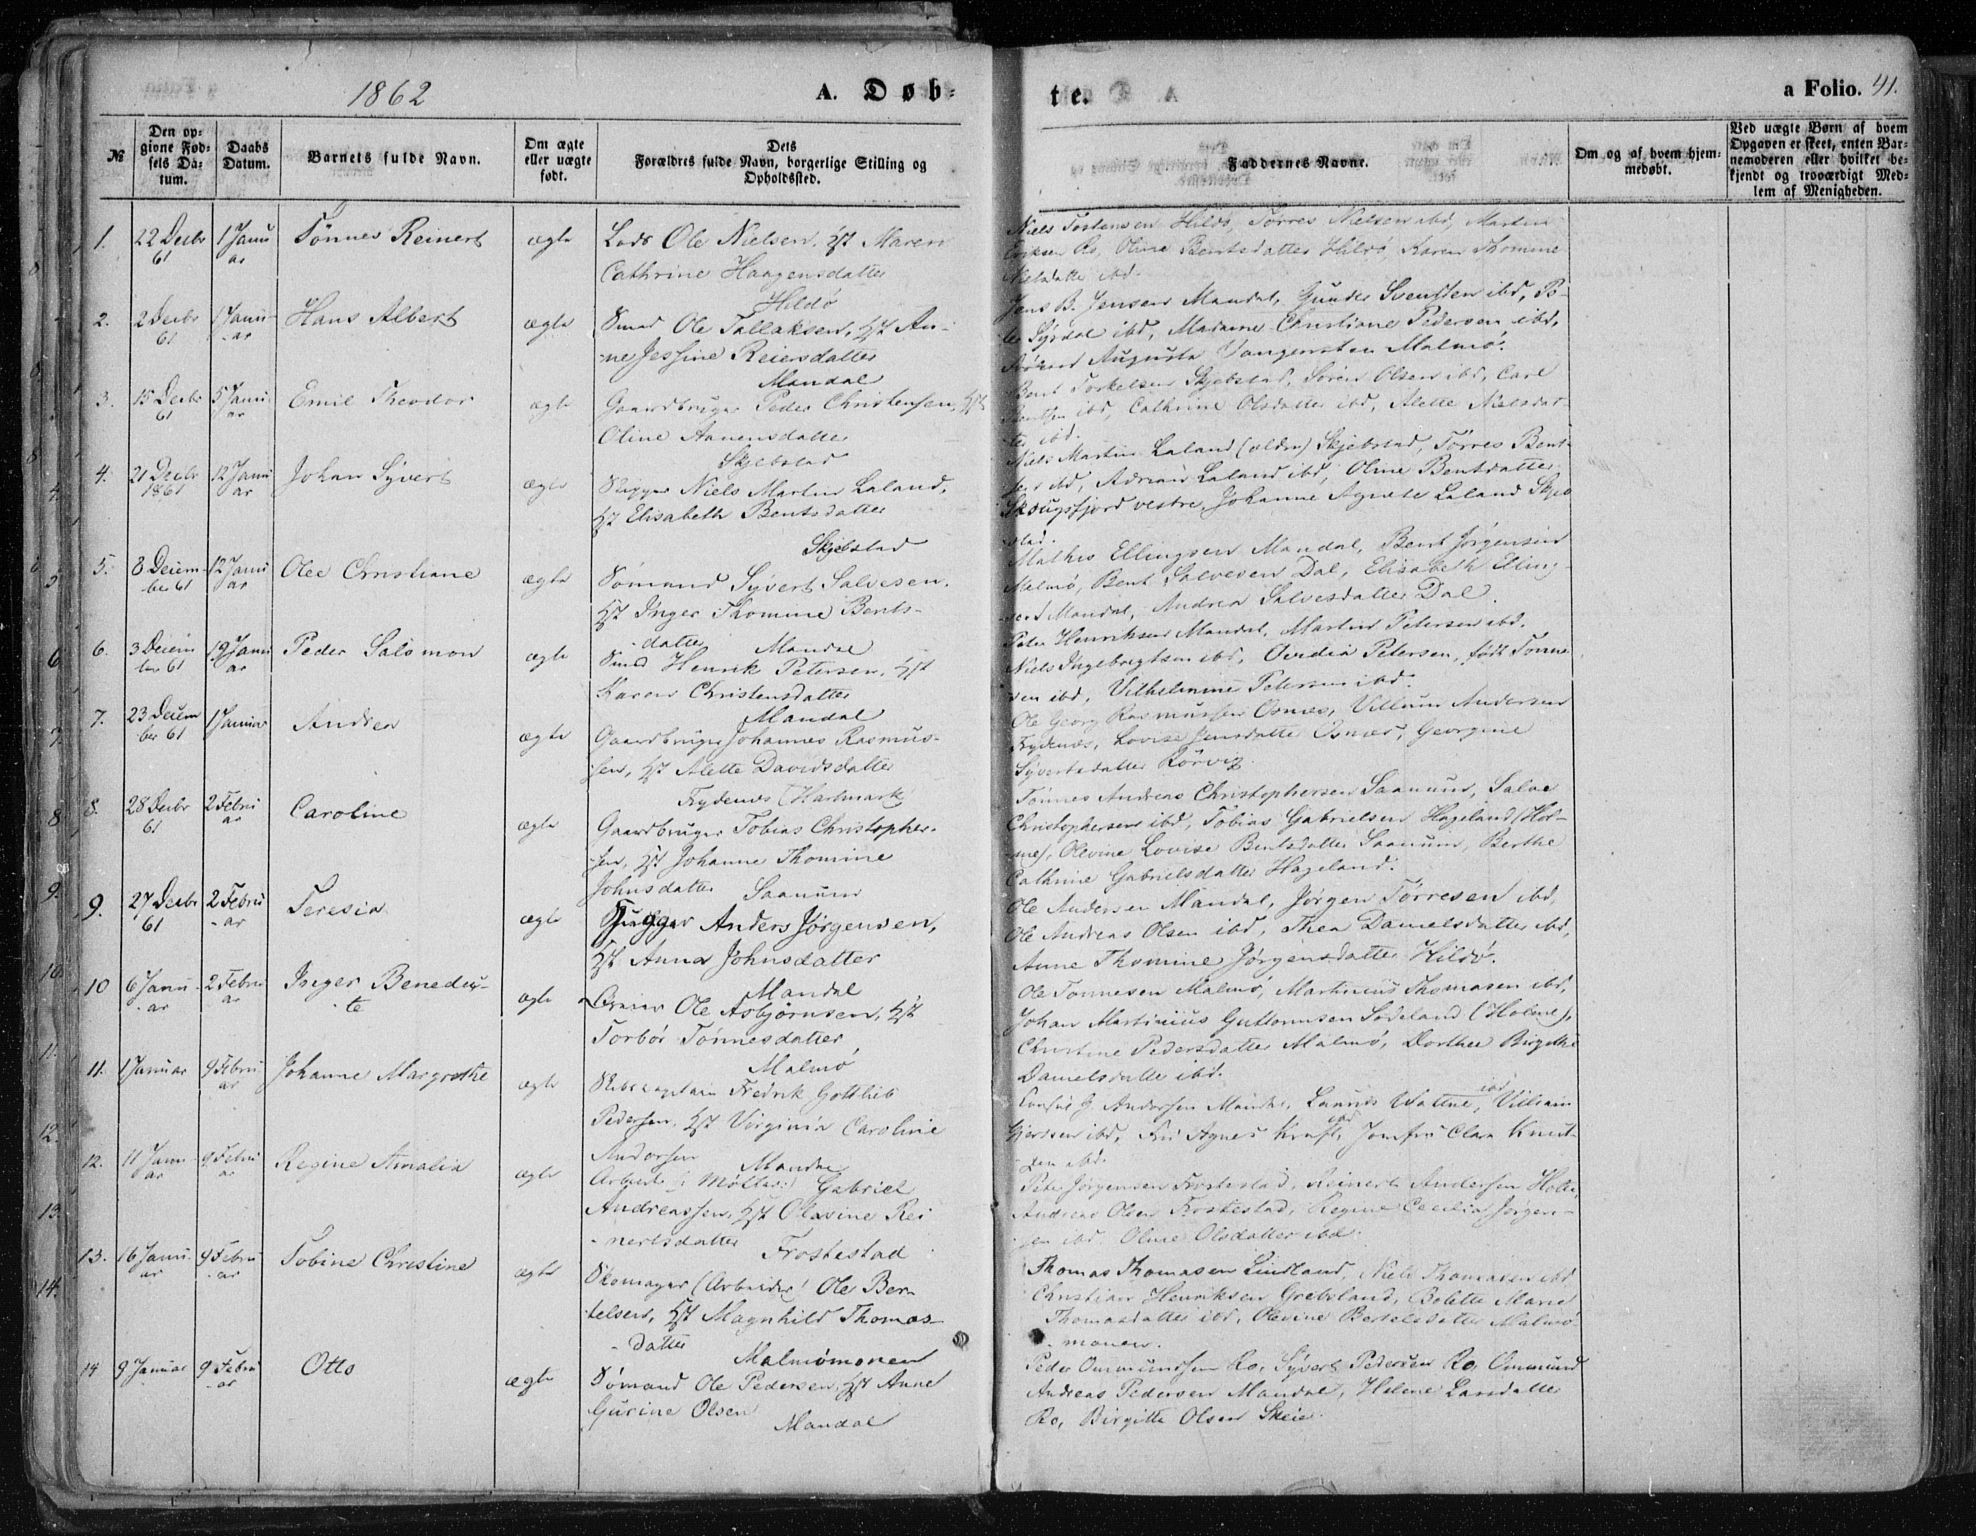 1862 A. Døb=
te. a Folio. 41.
№ Den op=givne Fød=sels Da=tum. Daabs Datum. Barnets fulde Navn. Om ægte eller uægte født. Dets Forældres fulde Navn, borgerlige Stilling og Opholdssted.
Faddernes Navne. Om og af hvem hjem=medøbt. Ved uægte Børn af hvem Opgaven er skeet, enten Bar=nemoderen eller hvilket be=kjendt og troværdigt Med=lem af Menigheden.
1. 22 Decbr 61 1 Januar Tønnes Reinert ægte Lods Ole Nielsen, Hst Maren
Cathrine Haagensdatter
Hildø
Niels Torstensen Hildø, Tørres Nielsen ibd, Martin
Eriksen Ro, Oline Bentsdatter Hildø, Karen Thomine
Nielsdatter ibd.
2. 2 Decbr 61 1 Januar Hans Albert ægte Smed Ole Tallaksen, Hst An-
ne Jessine Reiersdatter
Mandal
Jens B. Jensen Mandal, Gunder Svendsen ibd, P-
ter Syrdal ibd, Madame Christiane Pedersen ibd,
Augusta Vangensten Malmø.
3. 15 Decbr 61 5 Januar Emil Theodor ægte Gaardbruger Peder Christensen, Hst
Oline Aanensdatter
Skjebstad
Bent Torkelsen Skjebstad, Søren Olsen ibd, Carl
ibd, Cathrine Olsdatter ibd, Alette Nielsdat-
ter ibd.
4. 21 Decbr 1861 12 Januar Johan Syvert ægte Skipper Niels Martin Laland,
Hst Elisabeth Bentsdatter
Skjebstad
Niels Martin Laland (ældre) Skjebstad, Tørres Bent-
sen ibd, Adrian Laland ibd, Oline Bentsdatter
Skougsfjord vestre, Johanne Agnete Laland Skjeb
stad.
5. 8 Decem-ber 61 12 Januar Olee Christiane ægte Sømand Syvert Salvesen,
Hst Inger Thomine Bents-
datter Mandal
Mathis Ellingsen Mandal, Bent Jørgensen
Malmø, Bent Salvesen Dal, Elisabeth Elling-
send Mandal, Andrea Salvesdatter Dal.
6. 3 Decem ber 61 19 Januar Peder Salomon ægte Smed Henrik Petersen, Hst
Karen Christensdatter
Mandal
Peter Henriksen Mandal, Martin Petersen ibd,
Niels Ingebrigtsen ibd, Ovidia Petersen, født Tønne
sen ibd, Vilhelmine Petersen ibd.
7. 23 Decem ber 61 1 Januar Andrea ægte Gaardbruger Johannes Rasmus-
sen, Hst Alette Davidsdatter
Frydenæs (Hartmark)
Ole Georg Rasmussen Osnes, Villum Andersen
Frydenæs, Lovise Jensdatter Osnes, Georgine
Syvertsdatter Rørvig.
8. 28 Decbr 61 2 Februar Caroline ægte Gaardbruger Tobias Christopher-
sen, Hst Johanne Thomine
Johnsdatter Saanum
Tønnes Andreas Christophersen Saanum, Salve
Christophersen ibd, Tobias Gabrielsen Hageland (Hol-
me), Olevine Lovise Bentsdatter Saanum, Berthe
Cathrine Gabrielsdatter Hageland.
9. 27 Decbr 61 2 Februar Teresia ægte Anders Jørgensen,
Hst Anna Johnsdatter
Mandal
Ole Andersen Mandal, Jørgen Tørresen ibd,
Ole Andreas Olsen ibd, Thea Danielsdatter ibd,
Anne Thomine Jørgensdatter Hildø.
10 6 Januar 2 Februar Inger Benedic-te ægte Ole Asbjørnsen, Hst
Torbor Tønnesdatter
Malmø
Ole Tønnesen Malmø, Martinius Thomasen ibd,
Johan Martinius Guttormsen Sødeland (Holme),
Christine Pedersdatter Malmø, Dorthea Birgithe
Danielsdatter ibd.
11. 1 Januar 9 Februar Johanne Margrethe ægte Skibscaptain Fredrik Gottlieb
Pedersen, Hst Virginia Caroline
Andersen Mandal
Consul J. Andersen Mandal, Laurids Wattne, ibd Villiam
Gjertsen ibd, Frk Agnes Kraft, ibd Jomfru Clara Knut-
zen ibd.
12. 11 Januar 9 Februar Regine Amalia ægte Arbeider (Møller) Gabriel
Andreassen, Hst Olavine Rei
nertsdatter Frostestad
Peter Jørgensen Frostestad, Reinert Andersen Holte,
Andreas Olsen Frostestad, Regine Cecilia Jørgen-
sen ibd Oline Olsdatter ibd.
13. 16 Januar 9 Februar Tobine Christine ægte Skomager (Arbeider) Ole Ber-
telsen, Hst Magnhild Thomas-
datter Malmømonen
Thomas Thomasen Lindland, Niels Thomasen ibd
Christian Henriksen Grebsland, Bolette Marie
Thomasdatter ibd, Olevine Bertelsdatter Malmø
monen.
14 9 Januar 9 Februar Otto ægte Sømand Ole Pedersen, Hst Anne
Gurine Olsen
Mandal
Peder Ommundsen Ro, Syvert Pedersen Ro, Ommund
Andreas Pedersen Mandal, Helene Larsdatter
Ro, Birgitte Olsen Skeie.